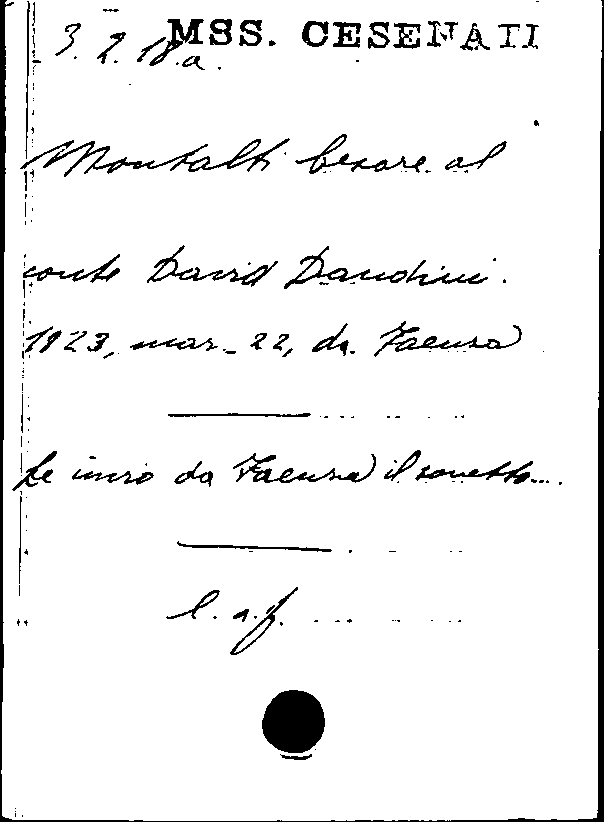 MSS. CESENATI
3.2.18.a.
Montalti Cesare al
conte David Dandini.
1823, mar. 22, da Faenza
Le invio da Faenza il sonetto...
l. a. f.